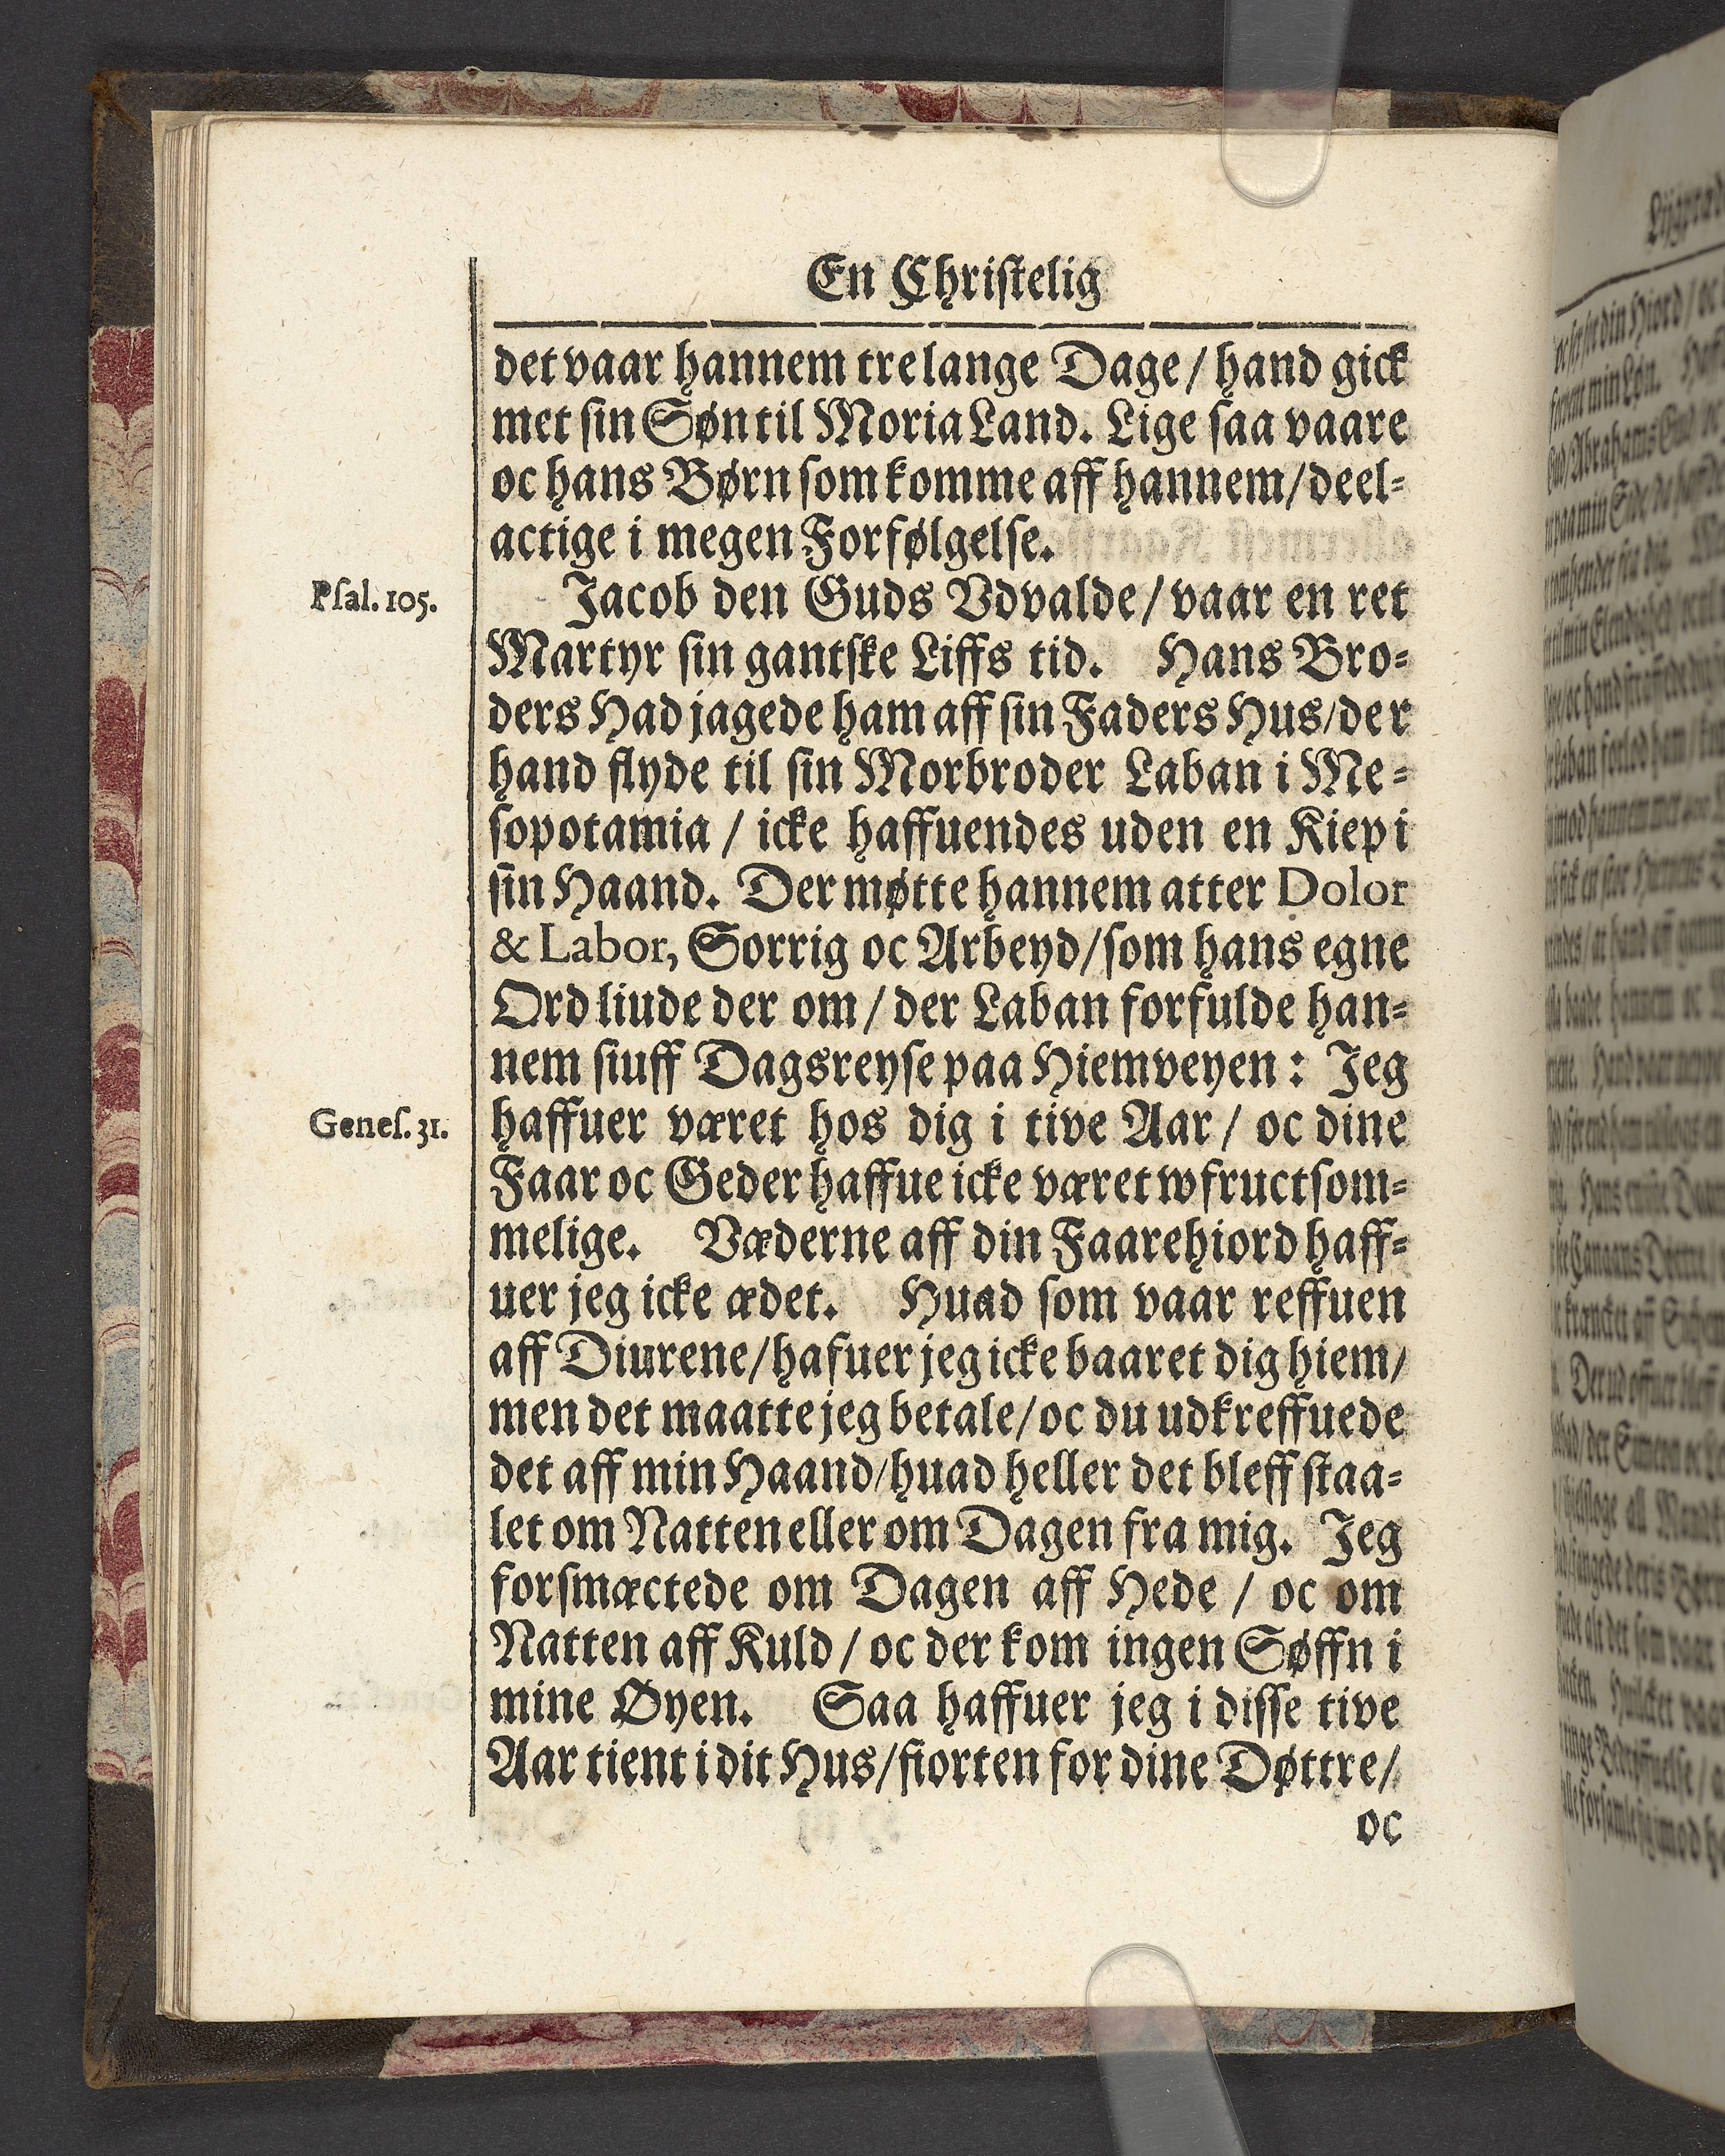 En Christelig
det vaar hannem tre lange Dage / hand gick
met sin Søn til Moria Land. Lige saa vaare
oc hans Børn som komme aff hannem / deel-
actige i megen Forfølgelse.
Psal. 105.
Jacob den Guds Vdvalde / vaar en ret
Martyr sin gantske Liffs tid. Hans Bro-
ders Had jagede ham aff sin Faders Hus / der
hand flyde til sin Morbroder Laban i Me-
sopotamia / icke haffuendes uden en Kiep i
sin Haand. Der møtte hannem atter Dolor
& Labor, Sorrig oc Arbeyd / som hans egne
Ord liude der om / der Laban forfulde han-
nem siuff Dagsreyse paa Hiemveyen: Jeg
Genes. 31.
haffuer været hos dig i tive Aar / oc dine
Faar oc Geder haffue icke været wfructsom-
melige. Væderne aff din Faarehiord haff-
uer jeg icke ædet. Huad som vaar reffuen
aff Diurene / hafuer jeg icke baaret dig hiem /
men det maatte jeg betale / oc du udkreffuede
det aff min Haand / huad heller det bleff staa-
let om Natten eller om Dagen fra mig. Jeg
forsmæctede om Dagen aff Hede / oc om
Natten aff Kuld / oc der kom ingen Søffn i
mine Øyen. Saa haffuer jeg i disse tive
Aar tient i dit Hus / fiorten for dine Døttre /
oc